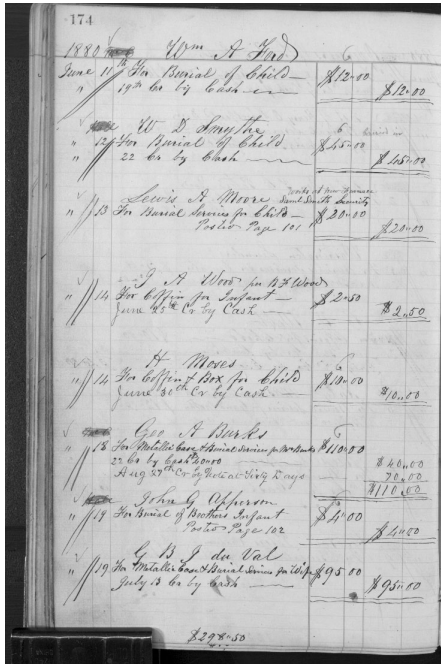 174
1880 Wm A Ford
June 11th For Burial of Child — $12.00
" 19th Cr by Cash — $12.00
W D Smythe
" 12 For Burial of Child $45.00
" 22 Cr by Cash — $45.00
Lewis A Moore Works at
Saml Smith Security
" 13 For Burial Services for Child — $20.00
Posted Page 101 $20.00
J A Wood per B F Wood
" 14 For Coffin for Infant — $2.50
June 25th Cr by Cash — $2.50
H Moses
" 14 For Coffin & Box for Child $10.00
June 30th Cr by Cash — $10.00
Geo A Burks
" 18 For Metallic Case & Burial Services for Mrs Burks $110.00
22 Cr by Cash 40.00 $40.00
Aug 27th Cr by Note at Sixty Days — 70.00
$110.00
John G Apperson
" 19 For Burial of Brothers Infant $4.00
Posted Page 102 $4.00
G B J du Val
" 19 For Metallic Case & Burial Services for Wife $95.00
July 13 Cr by Cash — $95.00
$298.50